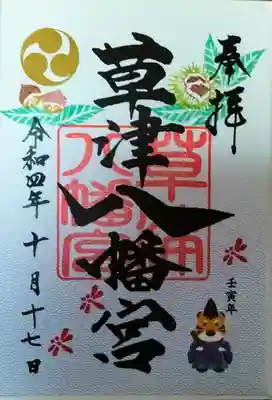 奉拝
草津八幡宮
草津八幡宮
壬寅年
令和四年 十月十七日